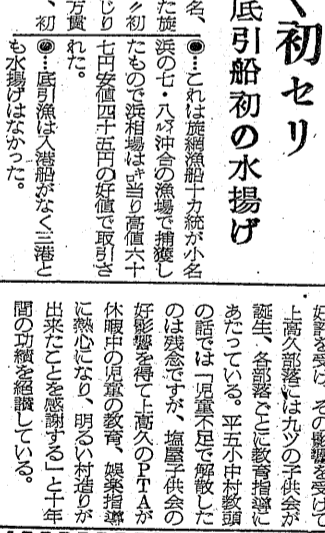 初セリ
底引船初の水揚げ
●…これは旋網漁船十カ統が小名
浜の七・八㌔沖合の漁場で捕獲し
たもので浜相場は㌔当り高値六十
七円安値四十五円の好値で取引さ
れた。
●…底引漁は入港船がなく三港と
も水揚げはなかった。
上高久部落には九ツの子供会が
誕生、各部落ごとに教育指導に
あたっている。平五小中村教頭
の話では「児童不足で解散した
のは残念ですが、塩屋子供会の
好影響を得て上高久のPTAが
休暇中の児童の教育、娯楽指導
に熱心になり、明るい村造りが
出来たことを感謝する」と十年
間の功績を絶讃している。